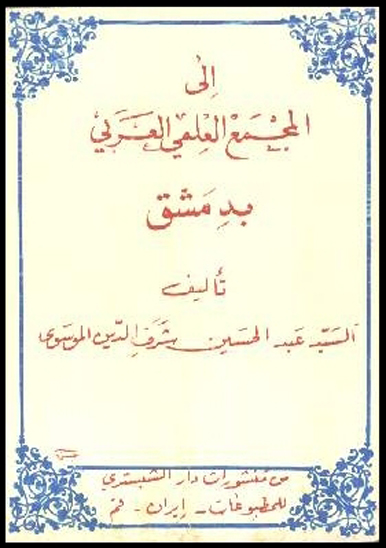 إلى
المجْمَع العِلمي العَرَبي
بدِمَشق
تأليف
السَيّد عَبد الحسَين شَرَف الدّين الموسَوي
من منشورات دار الشبستري
للمطبوعات - إيران - قم